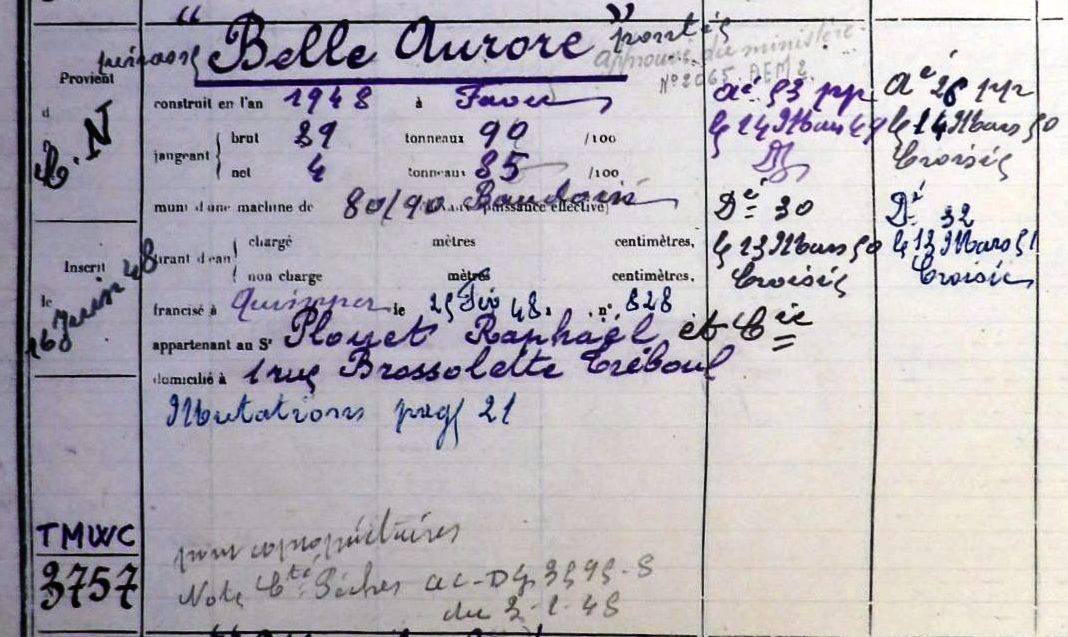 " Belle Aurore " pontés
approuvé du ministère
N° 2065. AEM2.
Provient
d
C.N
construit en l'an 1948 à
jaugeant { brut 39 tonneaux 90 /100
net 4 tonneaux 85 /100
muni d'une machine de 80/90 Baudouin puissance effective)
tirant d'eau { chargé mètres centimètres,
non chargé mètres centimètres,
Inscrit
le
16 Juin 48
francisé à Quimper le 25 48. n° 828
appartenant au Sr Plouet Raphaël et Cie
domicilié à 1 rue Brossolette Tréboul
Mutations page 21
Aé 53 pp
le 14 Mars 49
Aé 28 pp
le 14 Mars 50
Croisic
Dé 30
le 13 Mars 50
Croisic
Dé 32
le 13 Mars 51
Croisic
TMWC
3757
pour copropriétaires
Note Cté Pêches
du 3-1-48